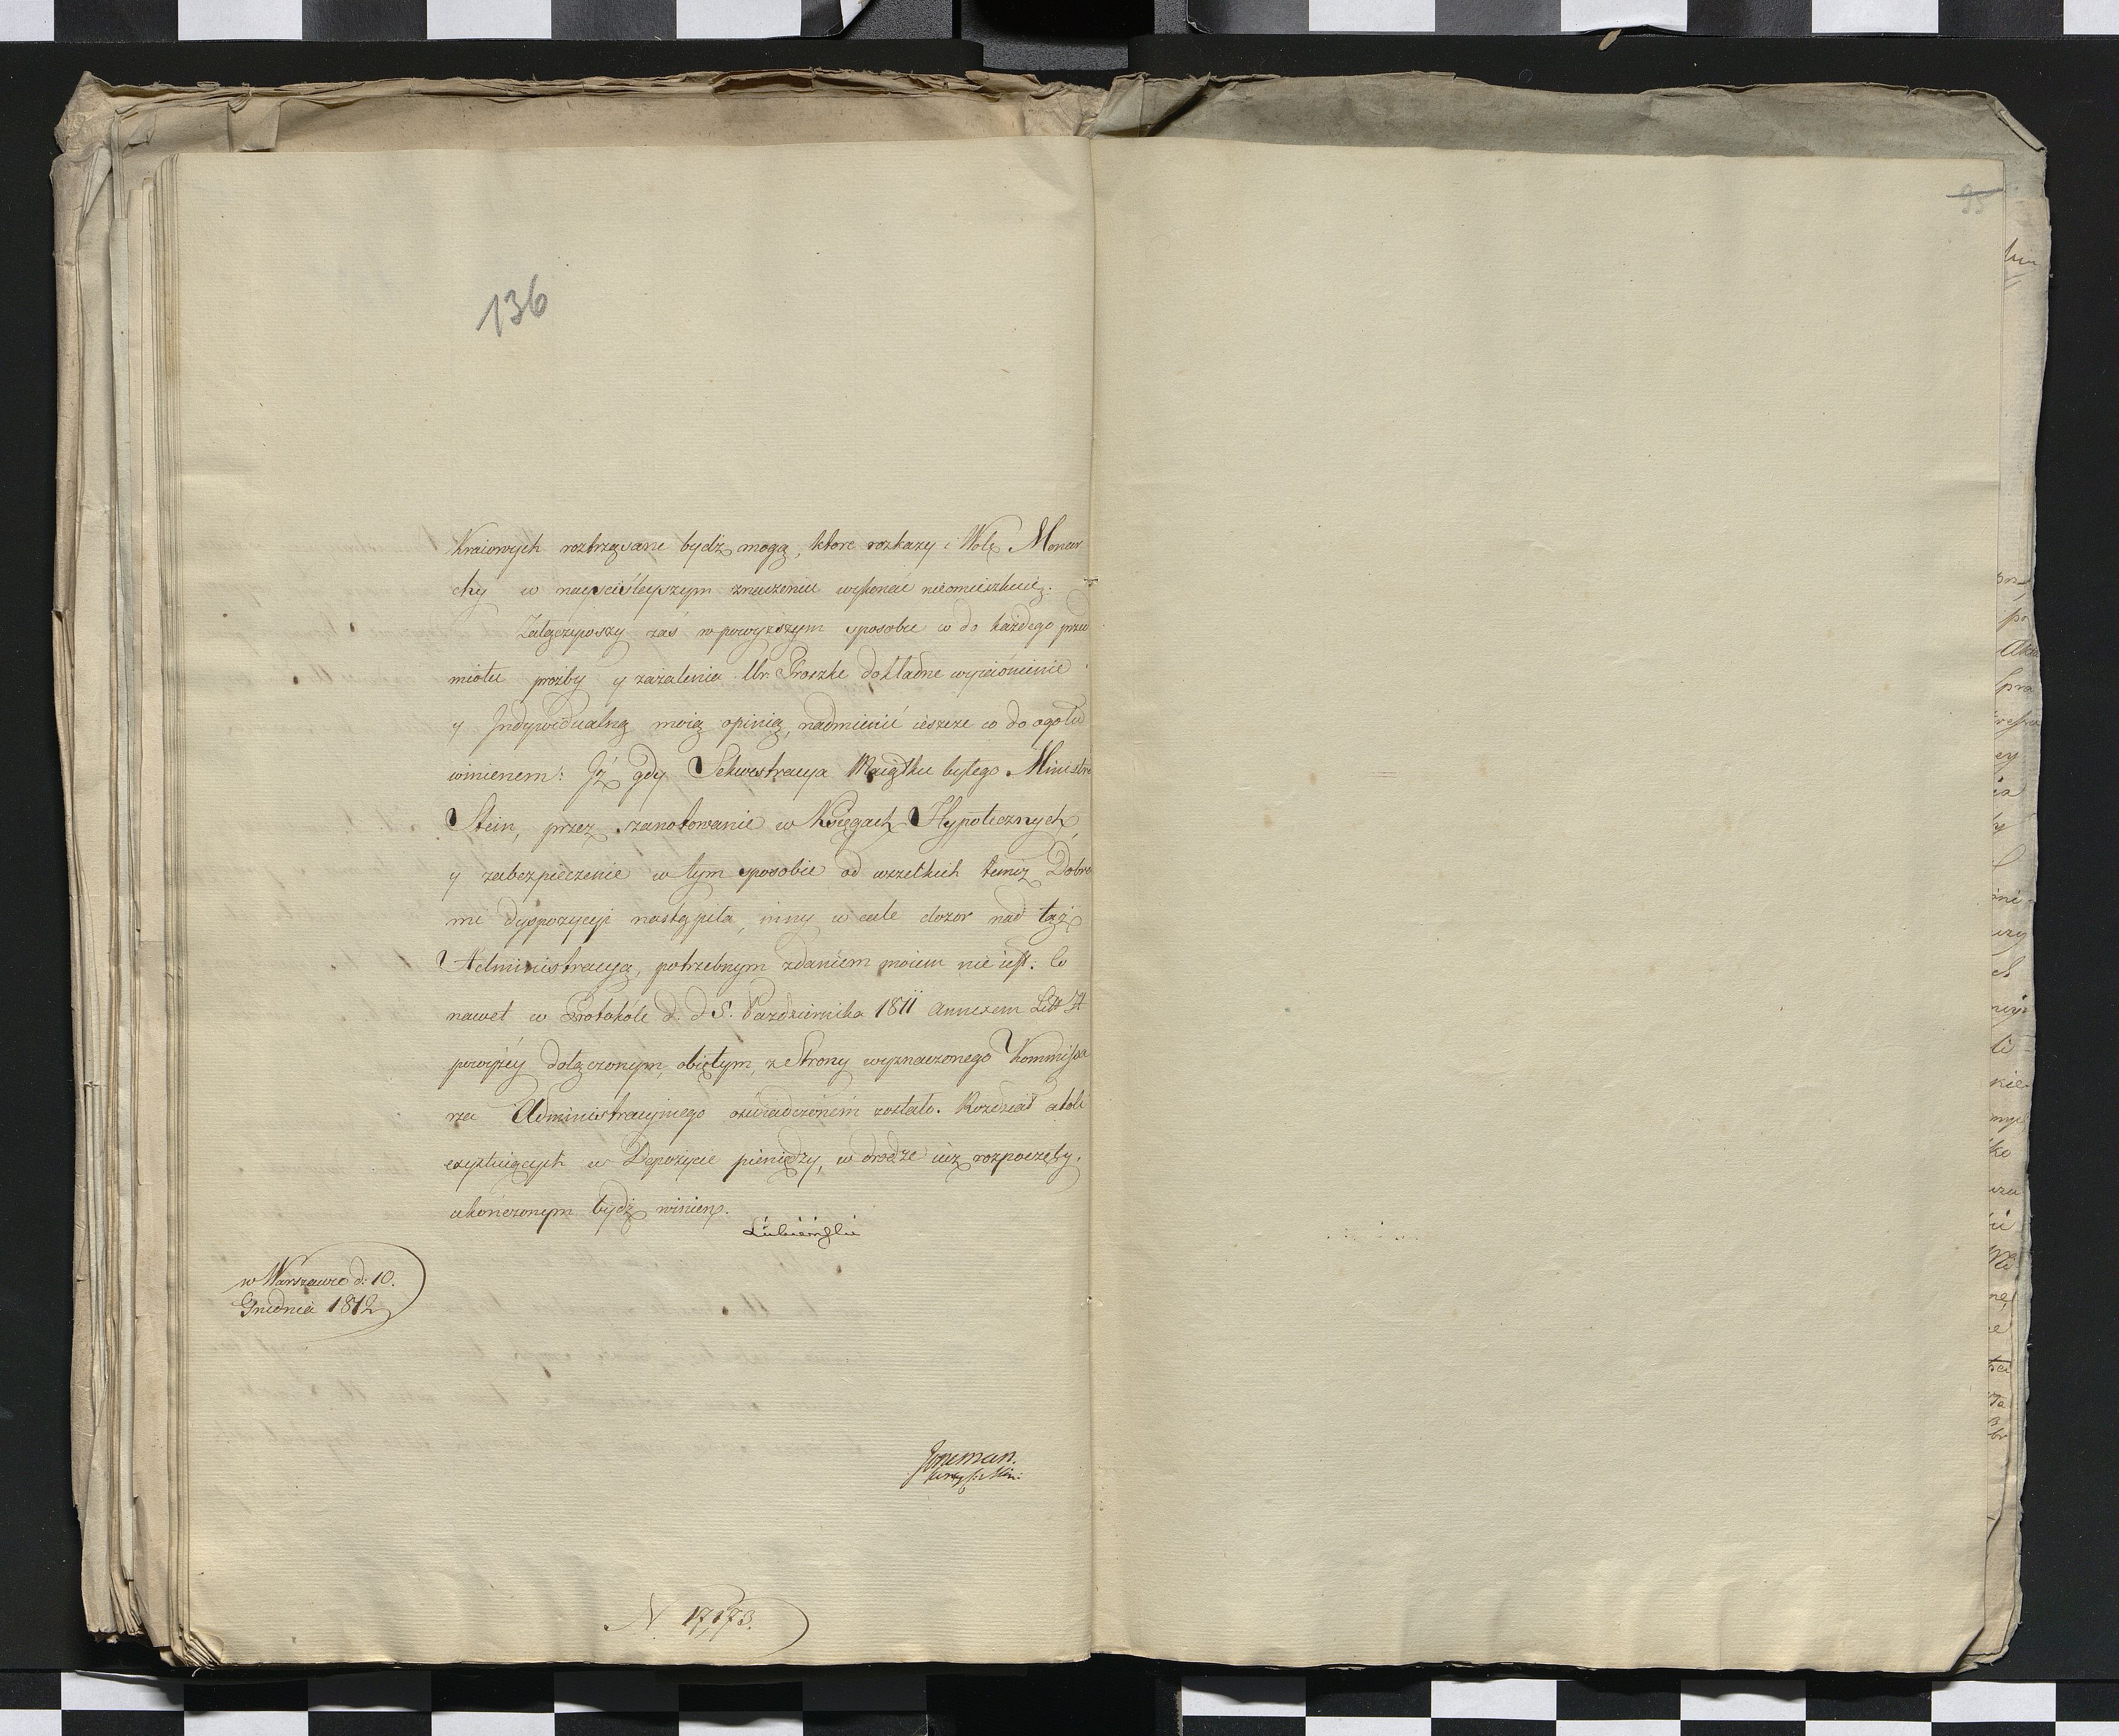 136
Kraiowych roztrząsane bydź mogą, ktore rozkazy i Wolę Monar
chy w nayściśleyszym znaczeniu wykonać nieomieszkaią.
Załączywszy zaś w powyższym sposobie co do każdego przed
miotu prozby y zażalenia Ur. Proszke dokładne wyiaśnienie
y Indywidualną moię opinią, nadmienić ieszcze co do ogołu
winienem: Iż gdy Sekwestracya Maiątku byłego Ministra
Stein, przez zanotowanie w Księgach Hypotecznych,
y zabezpieczenie w tym sposobie od wszelkich temiż Dobra
mi dyspozycyi nastąpiła, inny w cale dozor nad tąż
Administracyą, potrzebnym zdaniem moiem nie iest: Co
nawet w Protokóle d. d 5. Pazdziernika 1811 annexem Litt H
powyżéy dołączonym, obiętym, ze Strony wyznaczonego Kommissa
rza Administracyinego oswiadczonem zostało. Rozdział atoli
exystuiących w Depozycie pieniędzy, w drodze iuż rozpoczęty,
ukończonym bydź winien.
Łubieński
w Warszawie d: 10.
Grudnia 1812
N. 17,173.
95